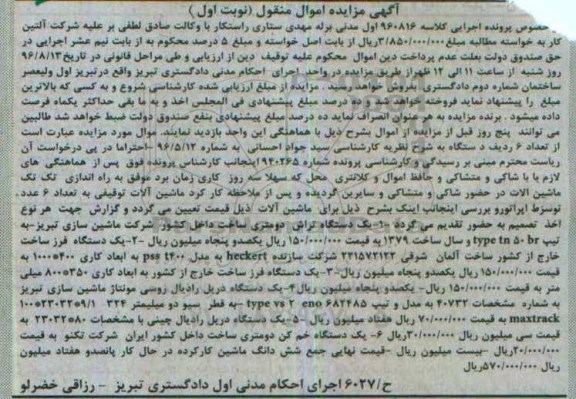 آگهی مزایده اموال منقول (نوبت اول)
خصوص پرونده اجرایی کلاسه ۹۶۰۸۱۶ اول مدنی برله مهدی ستاری راستکار با وکالت صادق لطفی بر علیه شرکت آلتین
کار به خواسته مطالبه مبلغ ۳/۸۵۰/۰۰۰/۰۰۰ریال از بابت اصل خواسته و مبلغ ۵ درصد محکوم به از بابت نیم عشر اجرایی در
حق صندوق دولت بعلت عدم پرداخت دین اموال محکوم علیه توقیف دین از ارزیابی و طی مراحل قانونی در تاریخ ۹۶/۸/۱۳
روز شنبه از ساعت ۱۱ الی ۱۲ ظهر از طریق مزایده در واحد اجرای احکام مدنی دادگستری تبریز واقع در تبریز اول ولیعصر
ساختمان شماره دوم دادگستری بفروش خواهد رسید . مزایده از مبلغ ارزیابی شده کارشناسی شروع و به کسی که بالاترین
مبلغ را پیشنهاد نماید فروخته خواهد درصد مبلغ پیشنهادی فی المجلس اخذ و به ما بقی حداکثر یکماه فرصت
داده میشود . برنده مزایده به هر عنوان انصراف نماید ده درصد مبلغ پیشنهادی بنفع صندوق دولت ضبط خواهد شد طالبین
می توانند پنج روز قبل از مزایده از اموال بشرح ذیل با هماهنگی این واحد بازدید نمایند. موال مورد مزایده عبارت است
از تعداد ۶ ردیف د ستگاه به شوح نظریه کارشناسی سید جواد احسانی به شماره ۹۶/۵/۱۲ -احتراما در پی درخواست آن
ریاست محترم مبنی بر رسیدگی و کارشناسی پرونده شماره ۹۴۰۲۶۵ اینجانب کارشناس پرونده فوق پس از هماهنگی های
لازم با با شاکی و متشاکی و حافظ اموال و کلانتری محل که سهلا سه روز کاری زمان برد موفق به راه اندازی تک تک
ماشین الات در حضور شاکی و متشاکی و سایرین گردیده و پس از ملاحظه کار کرد ماشین آلات توقیفی به تعداد ۶ عدد
توسزط اپراتورو بررسی اینجانب اینک بشرح ذیل برای ماشین آلات ذیل قیمت تعیین می گردد و گزارش جهت هر نوع
اخذ تصمیم به حضور تقدیم می گردد -۱ یک دستگاه تراش دومتری ساخت داخل کشور شرکت ماشین سازی تبریز-به
تیپ type tn ۵۰ br و سال ساخت ۱۳۷۹ به قیمت ۱۵۰/۰۰۰/۰۰۰ ریال یکصدو پنجاه میلیون ریال -۲-یک دستگاه فرز ساخت
خارج از کشور ساخت آلمان شرقی ۲۲۱۵۷۲۱۲۲ شرکت سازنده heckert به مدل pss t۴۰۰ به ابعاد کاری ۴۰۰*۱۰۰۰ به
قیمت ۱۵۰/۰۰۰/۰۰۰ ریال یکصدو پنجاه میلیون ریال-۳-یک دستگاه فرز ساخت خارج از کشور به ابعاد کاری ۳۵۰*۸۰۰ میلی
متر به قیمت ۱۵۰/۰۰۰/۰۰۰ ریال- یکصدو پنجاه میلیون ریال۴-یک دستگاه دریل رادیال روسی مونتاژ ماشین سازی تبریز
به شماره مشخصات ۴۰۷۳۲ به مدل و تیپ type vs ۲ eno ۶۸۲۴۸۵ -به قطر سیو دو میلیمتر
maxtrack به قیمت ۷۰/۰۰۰/۰۰۰ ریال هفتاد میلیون ریال -۵-یک دستگاه دریل رادیال چینی با مشخصات به
قیمت سی میلیون ریال ۳۰/۰۰۰/۰۰۰ریال ۶- یک دستگاه خم کن دومتری ساخت داخل کشور ایران شرکت تکنو به قیمت
۲۰/۰۰۰/۰۰۰ریال -بیست میلیون ریال -قیمت نهایی جمع شش دانگ ماشین کارکرده در حال کار پانصدو هفتاد میلیون
ریال ۵۷۰/۰۰۰/۰۰۰ریال
ح/۶۰۲۷ اجرای احکام مدنی اول دادگستری تبریز - رزاقی خضرلو